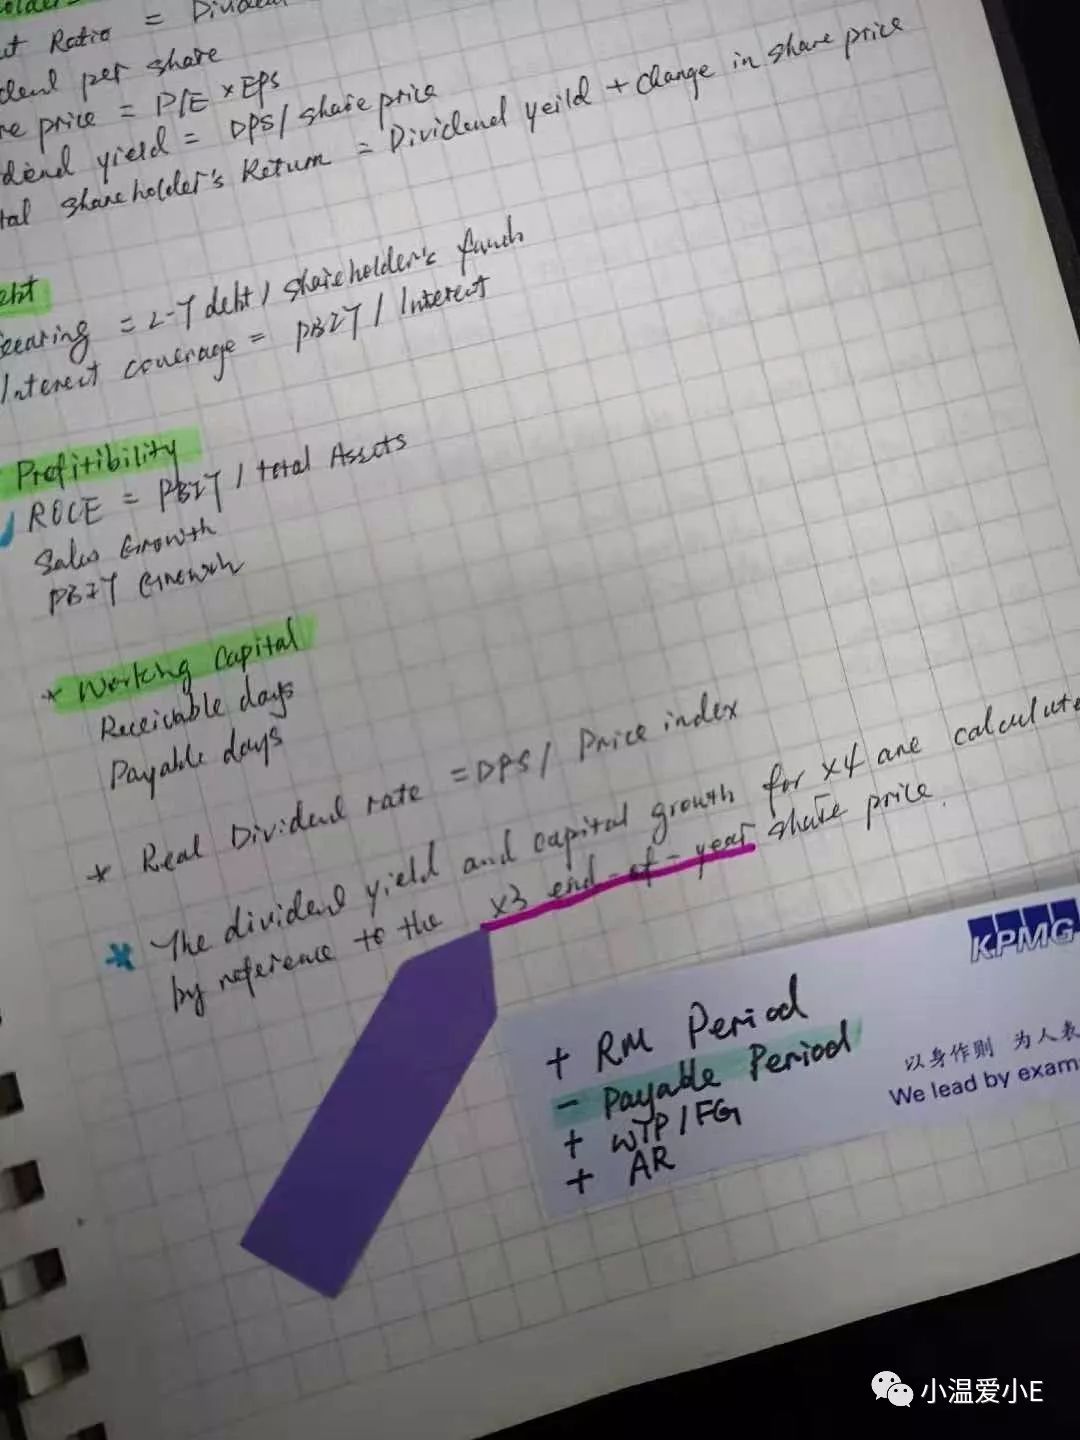 Ratio = Dividend
per share
price = P/E × EPS
yield = DPS / share price
shareholder's Return = Dividend yeild + change in share price
= L-T debt / shareholder's funds
Interest coverage = PBIT / Interest
Profitibility
ROCE = PBIT / total Assets
Sales Growth
PBIT Growth
* Working Capital
Receivable days
Payable days
* Real Dividend rate = DPS / Price index
* The dividend yield and capital growth for X4 are
by reference to the X3 end-of-year share price.
KPMG
+ RM Period
- Payable Period
+ WIP / FG
+ AR
以身作则 为人表
We lead by exam
小温爱小E